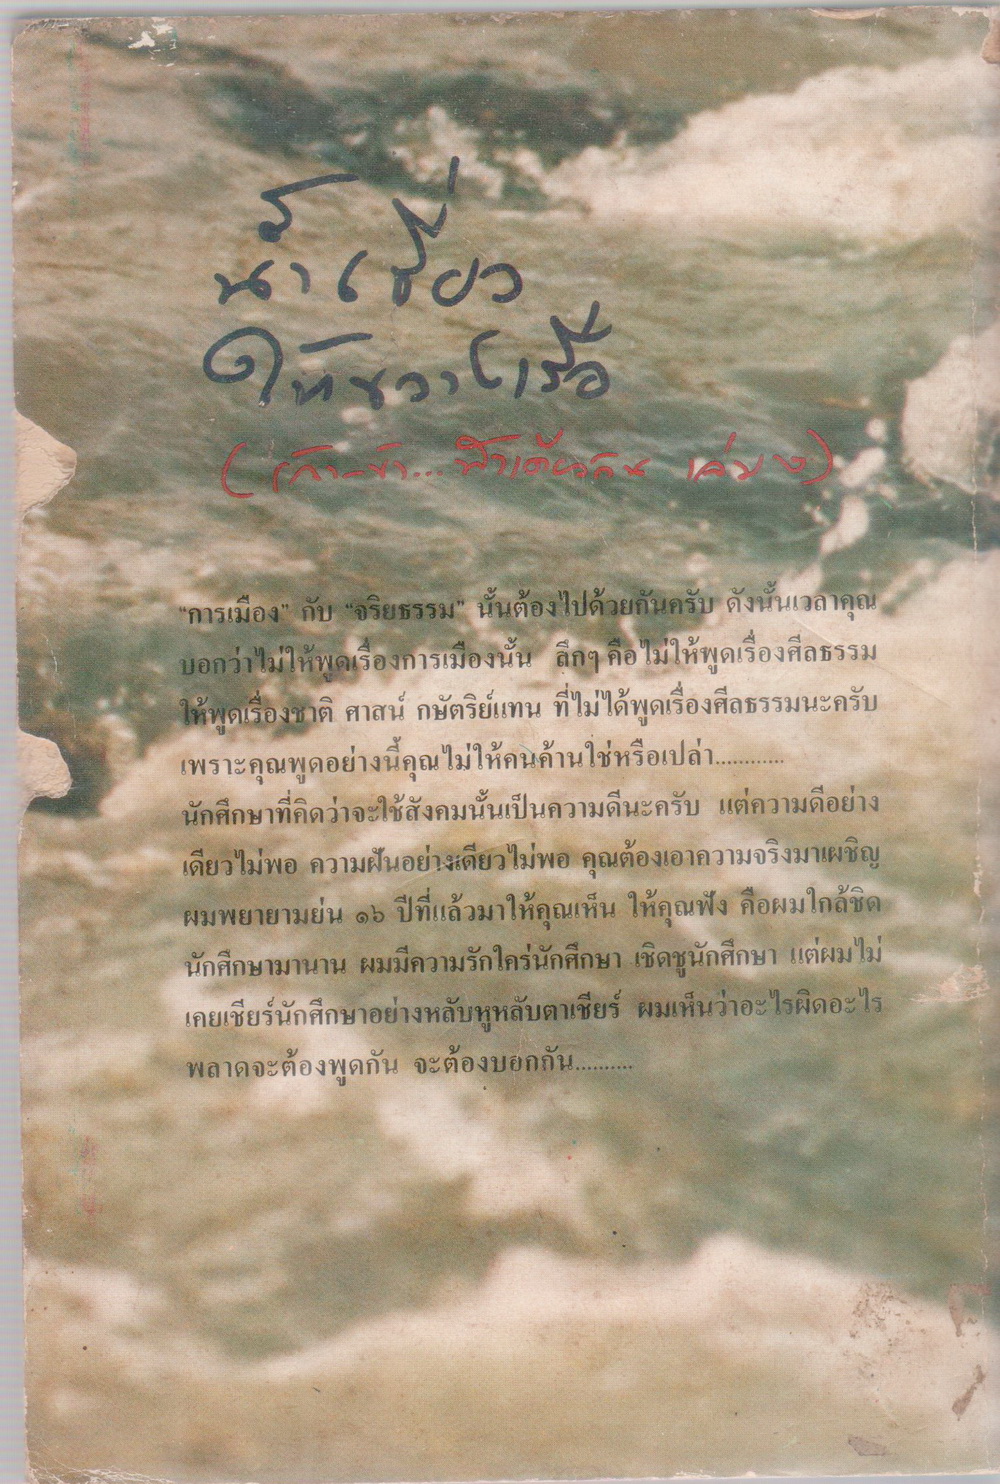 น้ำเชี่ยว
อย่าขวางเรือ
( เก้า-ห้า... ฟ้าเดียวกัน เล่ม ๒)
“การเมือง” กับ “จริยธรรม” นั้นต้องไปด้วยกันครับ ดังนั้นเวลาคุณ
บอกว่าไม่ให้พูดเรื่องการเมืองนั้น ลึกๆ คือไม่ให้พูดเรื่องศีลธรรม
ให้พูดเรื่องชาติ ศาสน์ กษัตริย์แทน ที่ไม่ได้พูดเรื่องศีลธรรมนะครับ
เพราะคุณพูดอย่างนี้คุณไม่ให้คนค้านใช่หรือเปล่า............
นักศึกษาที่คิดว่าจะใช้สังคมนั้นเป็นความดีนะครับ แต่ความดีอย่าง
เดียวไม่พอ ความฝันอย่างเดียวไม่พอ คุณต้องเอาความจริงมาเผชิญ
ผมพยายามย่น ๑๖ ปีที่แล้วมาให้คุณเห็น ให้คุณฟัง คือผมใกล้ชิด
นักศึกษามานาน ผมมีความรักใคร่นักศึกษา เชิดชูนักศึกษา แต่ผมไม่
เคยเชียร์นักศึกษาอย่างหลับหูหลับตาเชียร์ ผมเห็นว่าอะไรผิดอะไร
พลาดจะต้องพูดกัน จะต้องบอกกัน..........